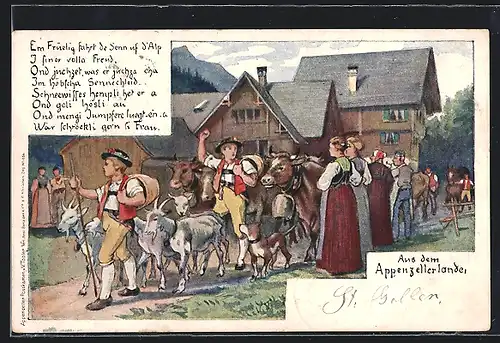 Em Früelig fahrt de Senn uf d'Alp
I siner volla Freud,
Ond juchzet, was er juchza cha
Im höbscha Sennechleid.
Schneewisses Hempli het er a
Ond geli Hösli au
Ond mengi Jumpfere luegt en a
War schröckli gern si Frau.
Aus dem
Appenzellerlande
St. Gallen,